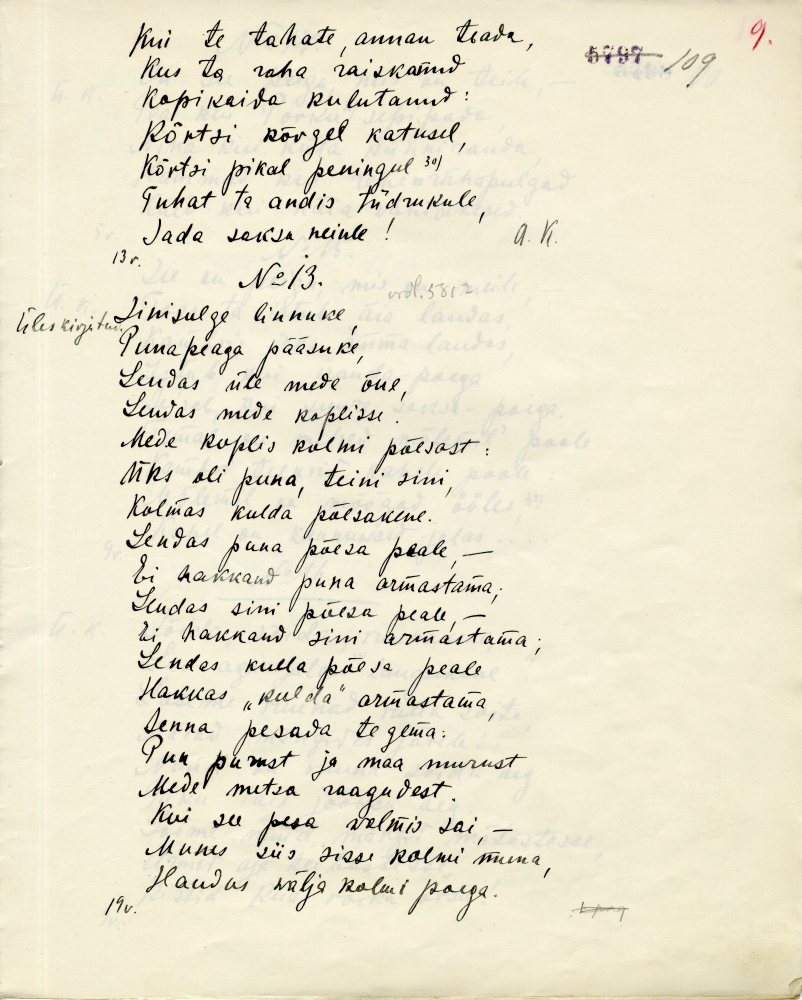 9.
5797 109
Kui te tahate, annan teada,
Kus ta raha raiskanud
Kopikaida kulutanud:
Kõrtsi kõrgel katusel,
Kõrtsi pikal peningul 30)
Tuhat ta andis tüdrukule,
Sada saksa neiule!
A. K.
13 v.
No 13.
vrd. 5812
Üleskirjutan.
Sinisulge linnuke,
Punapeaga pääsuke,
Lendas üle mede õue,
Lendas mede koplisse.
Mede koplis kolmi põesast:
Üks oli puna, teini sini,
Kolmas kulda põesakene.
Lendas puna põesa peale, —
Ei hakkand puna armastama;
Lendas sini põesa peale, —
Ei hakkand sini armastama;
Lendas kulla põesa peale
Hakkas „kulda" armastama,
Senna pesada tegema:
Puu purust ja maa murust
Mede metsa raagudest.
Kui see pesa valmis sai, —
Munes siis sisse kolmi muna,
Haudus wälja kolmi poega.
19 v.